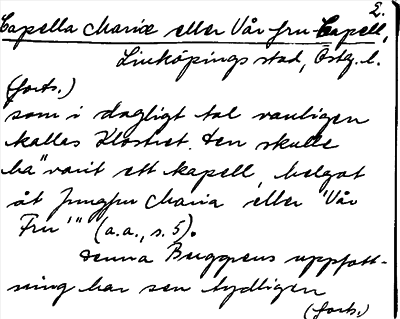 2.
Capella Mariæ eller Vår fru Capell,
Linköpings stad, Östg. l.
(forts.)
som i dagligt tal vanligen
kallas Klostret. Den skulle
ha "varit ett kapell, helgat
åt Jungfru Maria eller 'Vår
Fru'" (a.a., s. 5).
Denna Bugg­rens uppfatt-
ning har sen tydligen
(forts.)